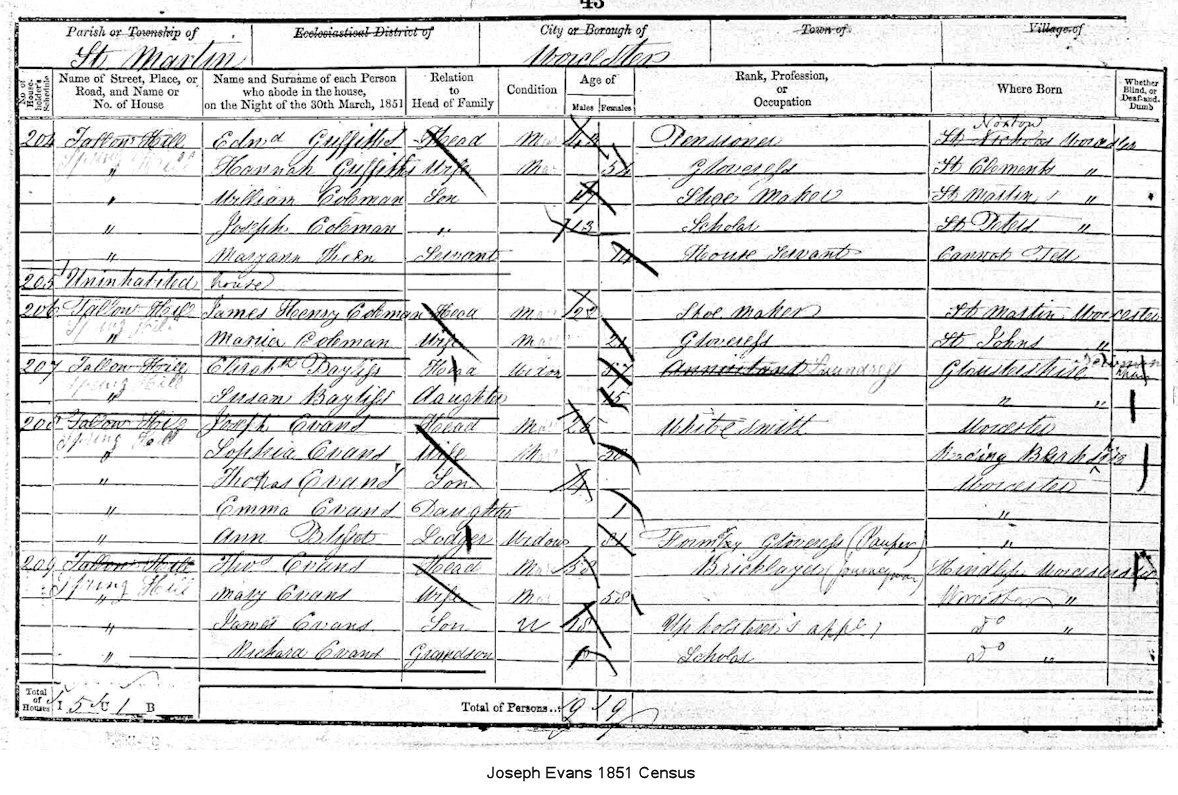 43
Parish or Township of Ecclesiastical District of City or Borough of Town of Village of
St. Martin Worcester
No. of Householder's Schedule Name of Street, Place, or Road, and Name or No. of House Name and Surname of each Person who abode in the house, on the Night of the 30th March, 1851 Relation to Head of Family Condition Age of Males Females Rank, Profession, or Occupation Where Born Whether Blind, or Deaf-and-Dumb
Norton
204 Tallow Hill Edwd Griffiths Head Mar Pensioner St. Nicholas Worcester
Spring Hill
" Hannah Griffiths Wife Mar Gloveress St Clements "
" William Coleman Son Shoe Maker St Martins "
" Joseph Coleman " 13 Scholar St Peters "
" Maryann Servant House Servant Cannot Tell
205 Uninhabited house
206 Tallow Hill James Henry Coleman Head Mar 22 Shoe Maker St Martin Worcester
Spring Hill
" Maria Coleman Wife Mar 21 Gloveress St Johns "
207 Tallow Hill Elizabth Bayliss Head Widow Annuitant Laundress Gloucestershire
Spring Hill
" Susan Bayliss daughter 15 " "
208 Tallow Hill Joseph Evans Head Mar 26 White smith Worcester
Spring Hill
" Sophia Evans Wife Mar Reading Berkshire
" Thomas Evans Son 4 Worcester
" Emma Evans Daughter 1 "
" Ann Lodger Widow 81 Formerly Gloveress (Pauper) "
209 Tallow Hill Thos Evans Head Mar 58 Bricklayer (journeyman) Hindlip Worcestershire
Spring Hill
" Mary Evans Wife Mar 58 Worcester "
" James Evans Son U 18 Upholsterer's app. Do "
" Richard Evans Grandson Scholar Do "
Total of Houses I 5 U 1 B Total of Persons... 9 9
Joseph Evans 1851 Census